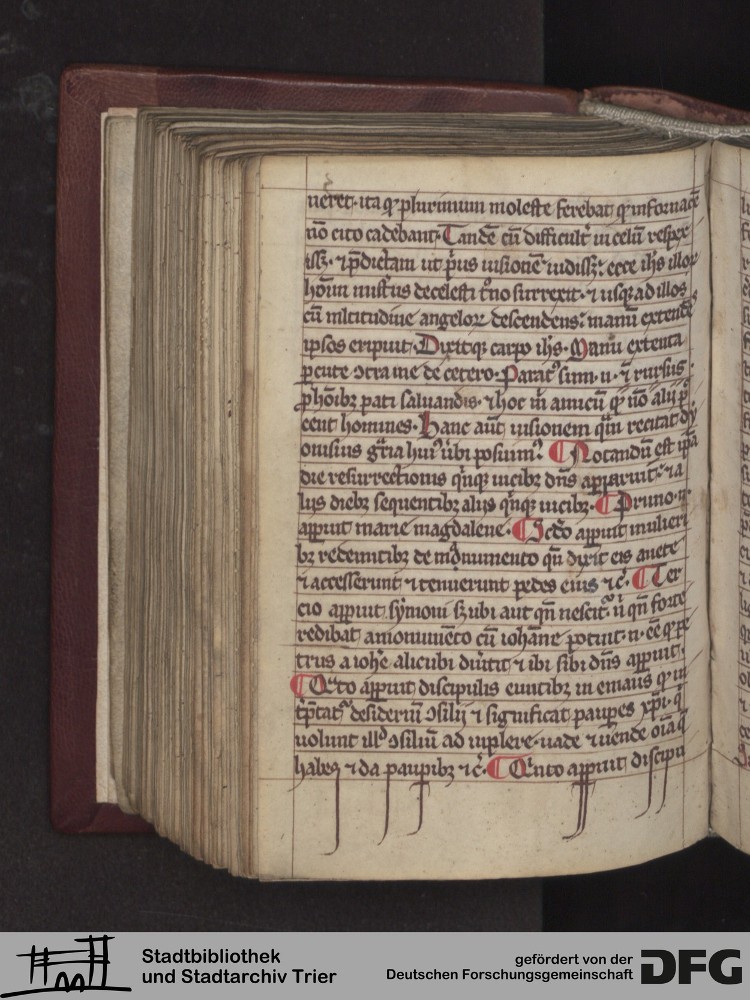 neret· ita qɜ plurimum moleste ferebat qɜ in fornacē
nō cito cadebant· Tandē cū difficult̕ in celū respex
issꝫ· ⁊ p̄dictam ut pͥus uisionē uidissꝫ: ecce ih̄s illoꝝ
hoīm mis̄tus de celesti t̄no surrexit· ⁊ usqꝫ ad illos
cū mltitudine angeloꝝ descendens: manū extendēs
ipsos eripuit· Dixitqꝫ carpo ih̄s· Manu extenta
ꝑcute ↄtra me de cetero· Parat᷒ sum· n· ⁊ rursus
ꝓ hōibꝫ pati saluandis· ⁊ hoc m̄ amicū qɜ nō alij pͨ
cent homines· Hanc aūt uisionem qm̄ recitat dy
onisius gr̄ia hui᷒ ubi posuim᷒: ¶ Notandū est ip̄a
die resurrectionis qͥnqꝫ uicibꝫ dn̄s apparuit: ⁊ a
lijs diebꝫ sequentibꝫ alijs qͥnqꝫ uicibꝫ· ¶ Primo·n·
apꝑuit marie magdalene· ¶ Scd̄o apꝑuit mulieri
bꝫ redeuntibꝫ de monumento qn̄ dixit eis auete
⁊ accesserunt ⁊ tenuerunt pedes eius ⁊c̄· ¶ Ter
cio apꝑuit symoni sꝫ ubi aut qn̄ nescit᷑ n̄ qn̄ forte
redibat a monumēto cū ioh̄anne potuit· n· eē qɜ pe
trus a ioh̄e alicubi diu̕tit ⁊ ibi sibi dn̄s apꝑuit·
¶ Qͣrto apꝑuit discipulis euntibꝫ in emaus qɜ in
tp̄tat᷑ desideriū ↄsilij ⁊ significat pauꝑes xp̄i· qͥ
uolunt ill᷒ ↄsiliū adimplere· uade ⁊ uende oīa q̄
habes ⁊ da pauꝑibꝫ ⁊c̄· ¶ Qͥnto apꝑuit discipu
Stadtbibliothek
und Stadtarchiv Trier
gefördert von der
Deutschen Forschungsgemeinschaft
DFG